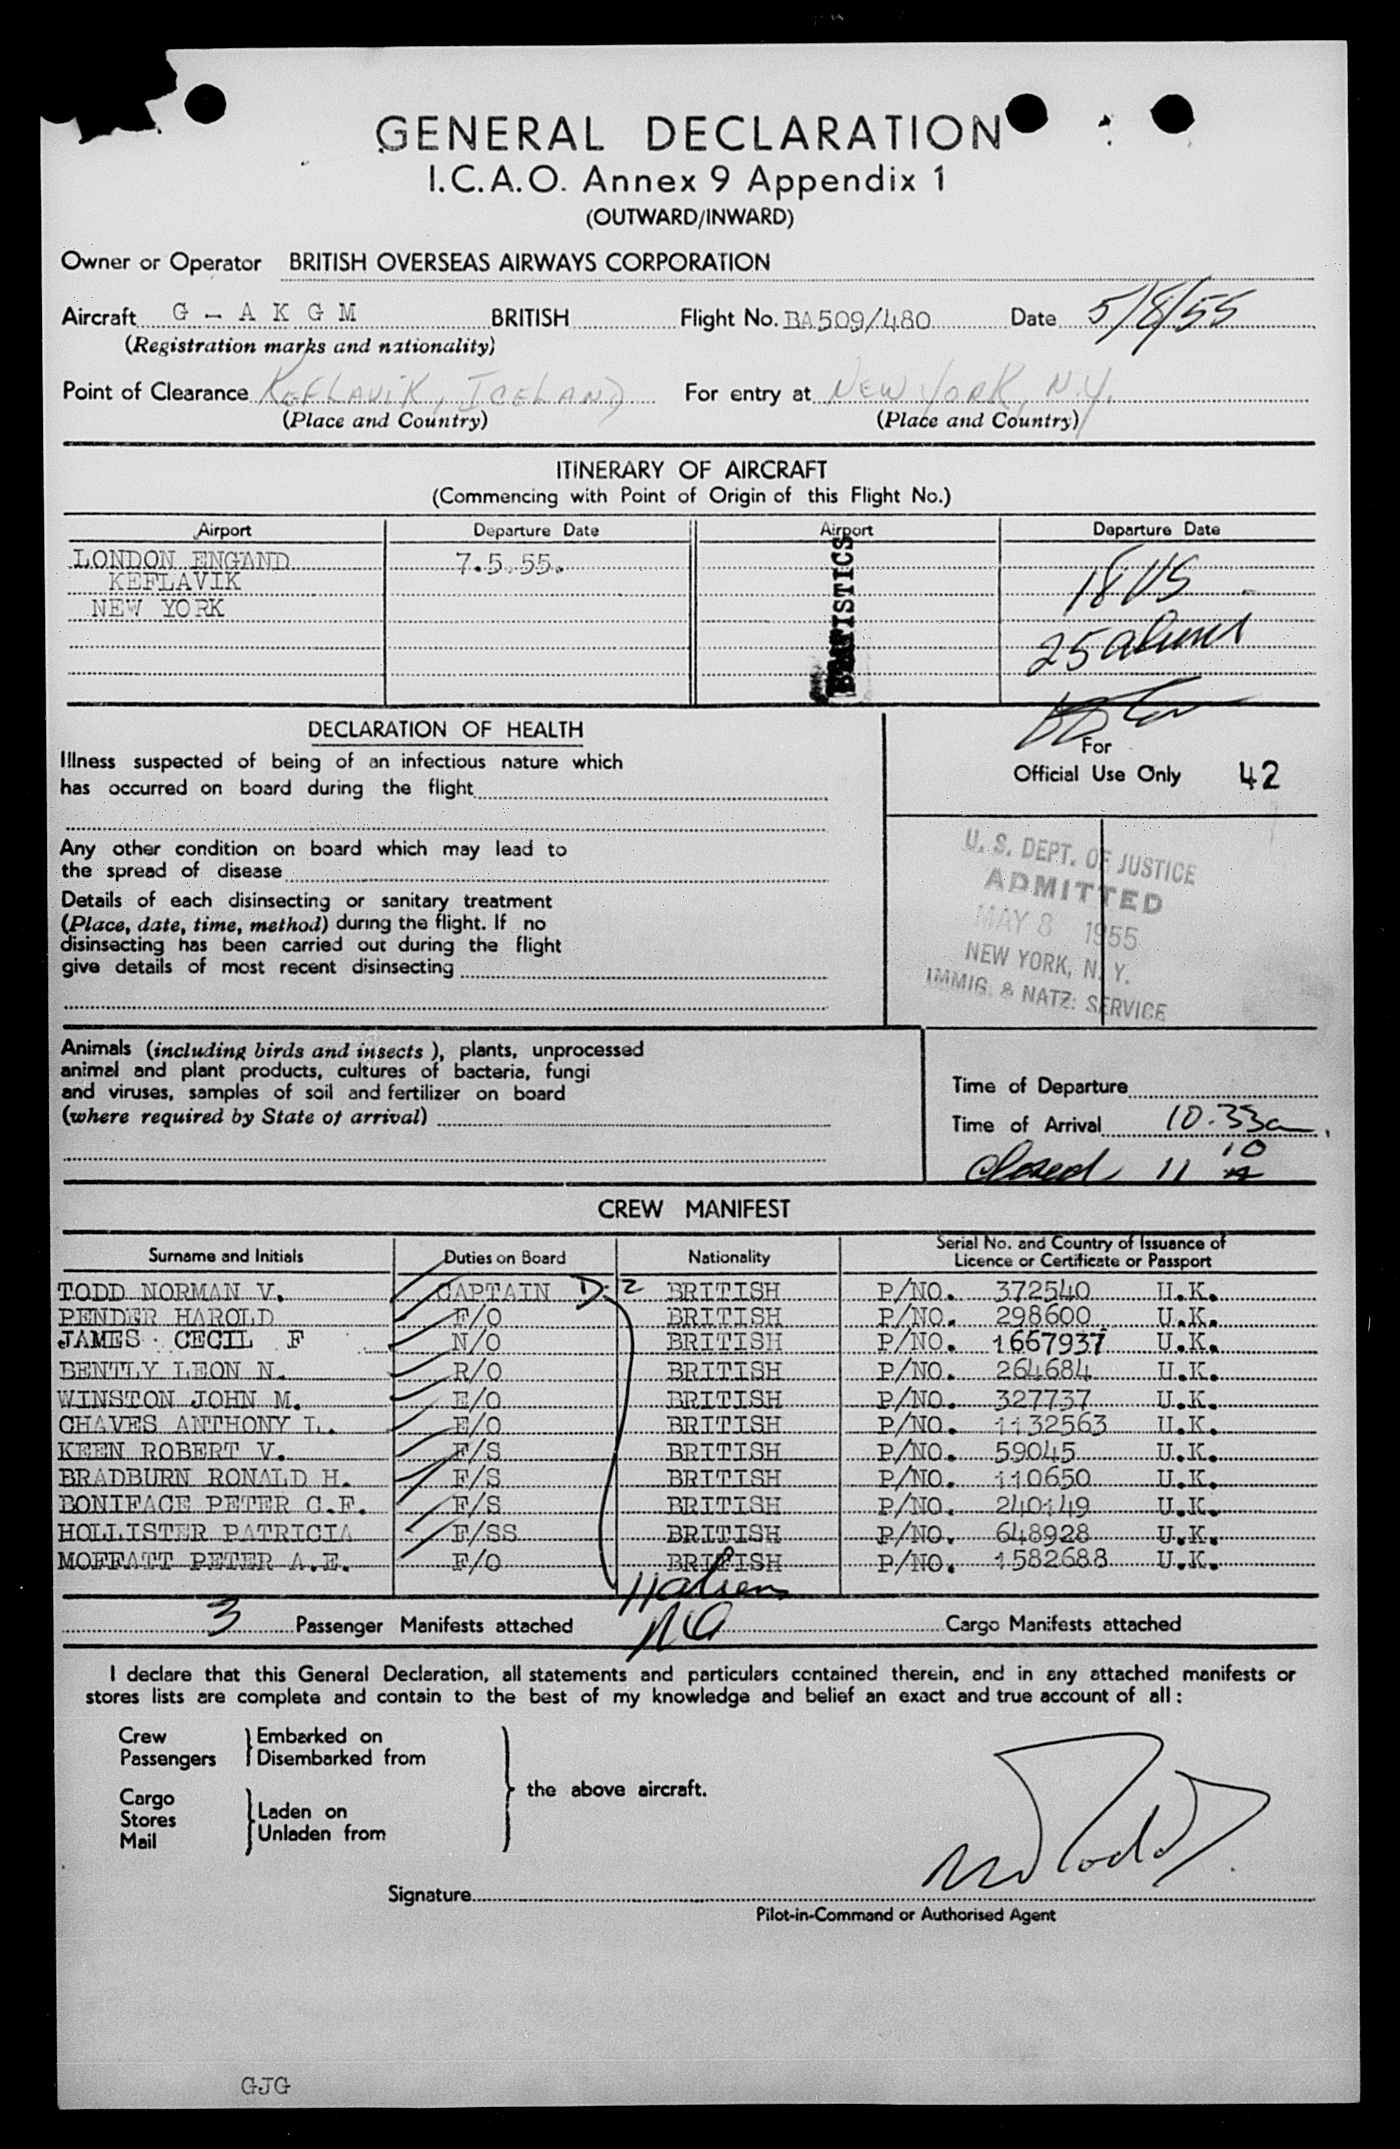 GENERAL DECLARATION
I.C.A.O. Annex 9 Appendix 1
(OUTWARD/INWARD)
Owner or Operator BRITISH OVERSEAS AIRWAYS CORPORATION
Aircraft G - A K G M BRITISH Flight No. BA509/480 Date 5/8/55
(Registration marks and nationality)
Point of Clearance KEFLAVIK, ICELAND For entry at NEW YORK, N.Y.
(Place and Country) (Place and Country)
ITINERARY OF AIRCRAFT
(Commencing with Point of Origin of this Flight No.)
Airport Departure Date Airport Departure Date
LONDON ENGAND 7.5.55.
KEFLAVIK
NEW YORK
STATISTICS
18 US
25 aliens
DECLARATION OF HEALTH
Illness suspected of being of an infectious nature which
has occurred on board during the flight
Any other condition on board which may lead to
the spread of disease
Details of each disinsecting or sanitary treatment
(Place, date, time, method) during the flight. If no
disinsecting has been carried out during the flight
give details of most recent disinsecting
For
Official Use Only 42
U. S. DEPT. OF JUSTICE
ADMITTED
MAY 8 1955
NEW YORK, N. Y.
IMMIG. & NATZ: SERVICE
Animals (including birds and insects), plants, unprocessed
animal and plant products, cultures of bacteria, fungi
and viruses, samples of soil and fertilizer on board
(where required by State of arrival)
Time of Departure
Time of Arrival 10.33a
Closed 11 10
CREW MANIFEST
Surname and Initials Duties on Board Nationality Serial No. and Country of Issuance of Licence or Certificate or Passport
TODD NORMAN V. CAPTAIN D-2 BRITISH P/NO. 372540 U.K.
PENDER HAROLD F/O BRITISH P/NO. 298600 U.K.
JAMES CECIL F N/O BRITISH P/NO. 1667937 U.K.
BENTLY LEON N. R/O BRITISH P/NO. 264684 U.K.
WINSTON JOHN M. E/O BRITISH P/NO. 327737 U.K.
CHAVES ANTHONY L. E/O BRITISH P/NO. 1132563 U.K.
KEEN ROBERT V. F/S BRITISH P/NO. 59045 U.K.
BRADBURN RONALD H. F/S BRITISH P/NO. 110650 U.K.
BONIFACE PETER C.F. F/S BRITISH P/NO. 240149 U.K.
HOLLISTER PATRICIA F/SS BRITISH P/NO. 648928 U.K.
MOFFATT PETER A.E. F/O BRITISH P/NO. 1582688 U.K.
11 aliens
3 Passenger Manifests attached Cargo Manifests attached
I declare that this General Declaration, all statements and particulars contained therein, and in any attached manifests or
stores lists are complete and contain to the best of my knowledge and belief an exact and true account of all :
Crew Embarked on
Passengers Disembarked from
the above aircraft.
Cargo
Stores Laden on
Mail Unladen from
Signature N V Todd
Pilot-in-Command or Authorised Agent
GJG